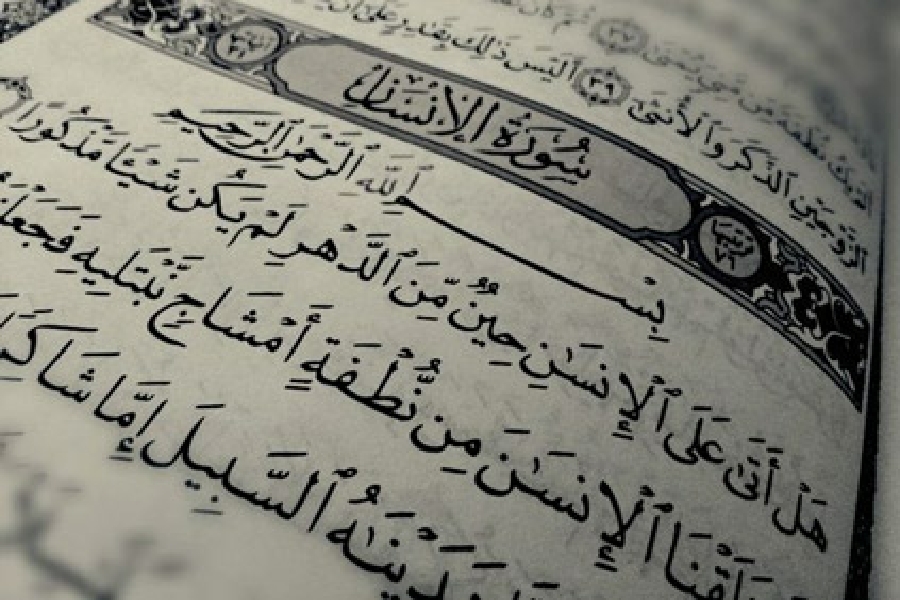 نُطْفَةً مِّن مَّنِىٍّ يُمْنَىٰ ٣٧ ثُمَّ كَانَ
ٱلزَّوْجَيْنِ ٱلذَّكَرَ وَٱلْأُنثَىٰٓ ٣٩ أَلَيْسَ ذَٰلِكَ بِقَٰدِرٍ عَلَىٰٓ أَن
ترتيبها ٧٦ سُورَةُ الإِنْسَان آياتها ٣١
بِسْمِ ٱللَّهِ ٱلرَّحْمَٰنِ ٱلرَّحِيمِ
هَلْ أَتَىٰ عَلَى ٱلْإِنسَٰنِ حِينٌ مِّنَ ٱلدَّهْرِ لَمْ يَكُن شَيْـًٔا مَّذْكُورًا
لَقْنَا ٱلْإِنسَٰنَ مِن نُّطْفَةٍ أَمْشَاجٍ نَّبْتَلِيهِ فَجَعَلْ
دَيْنَٰهُ ٱلسَّبِيلَ إِمَّا شَاكِرً